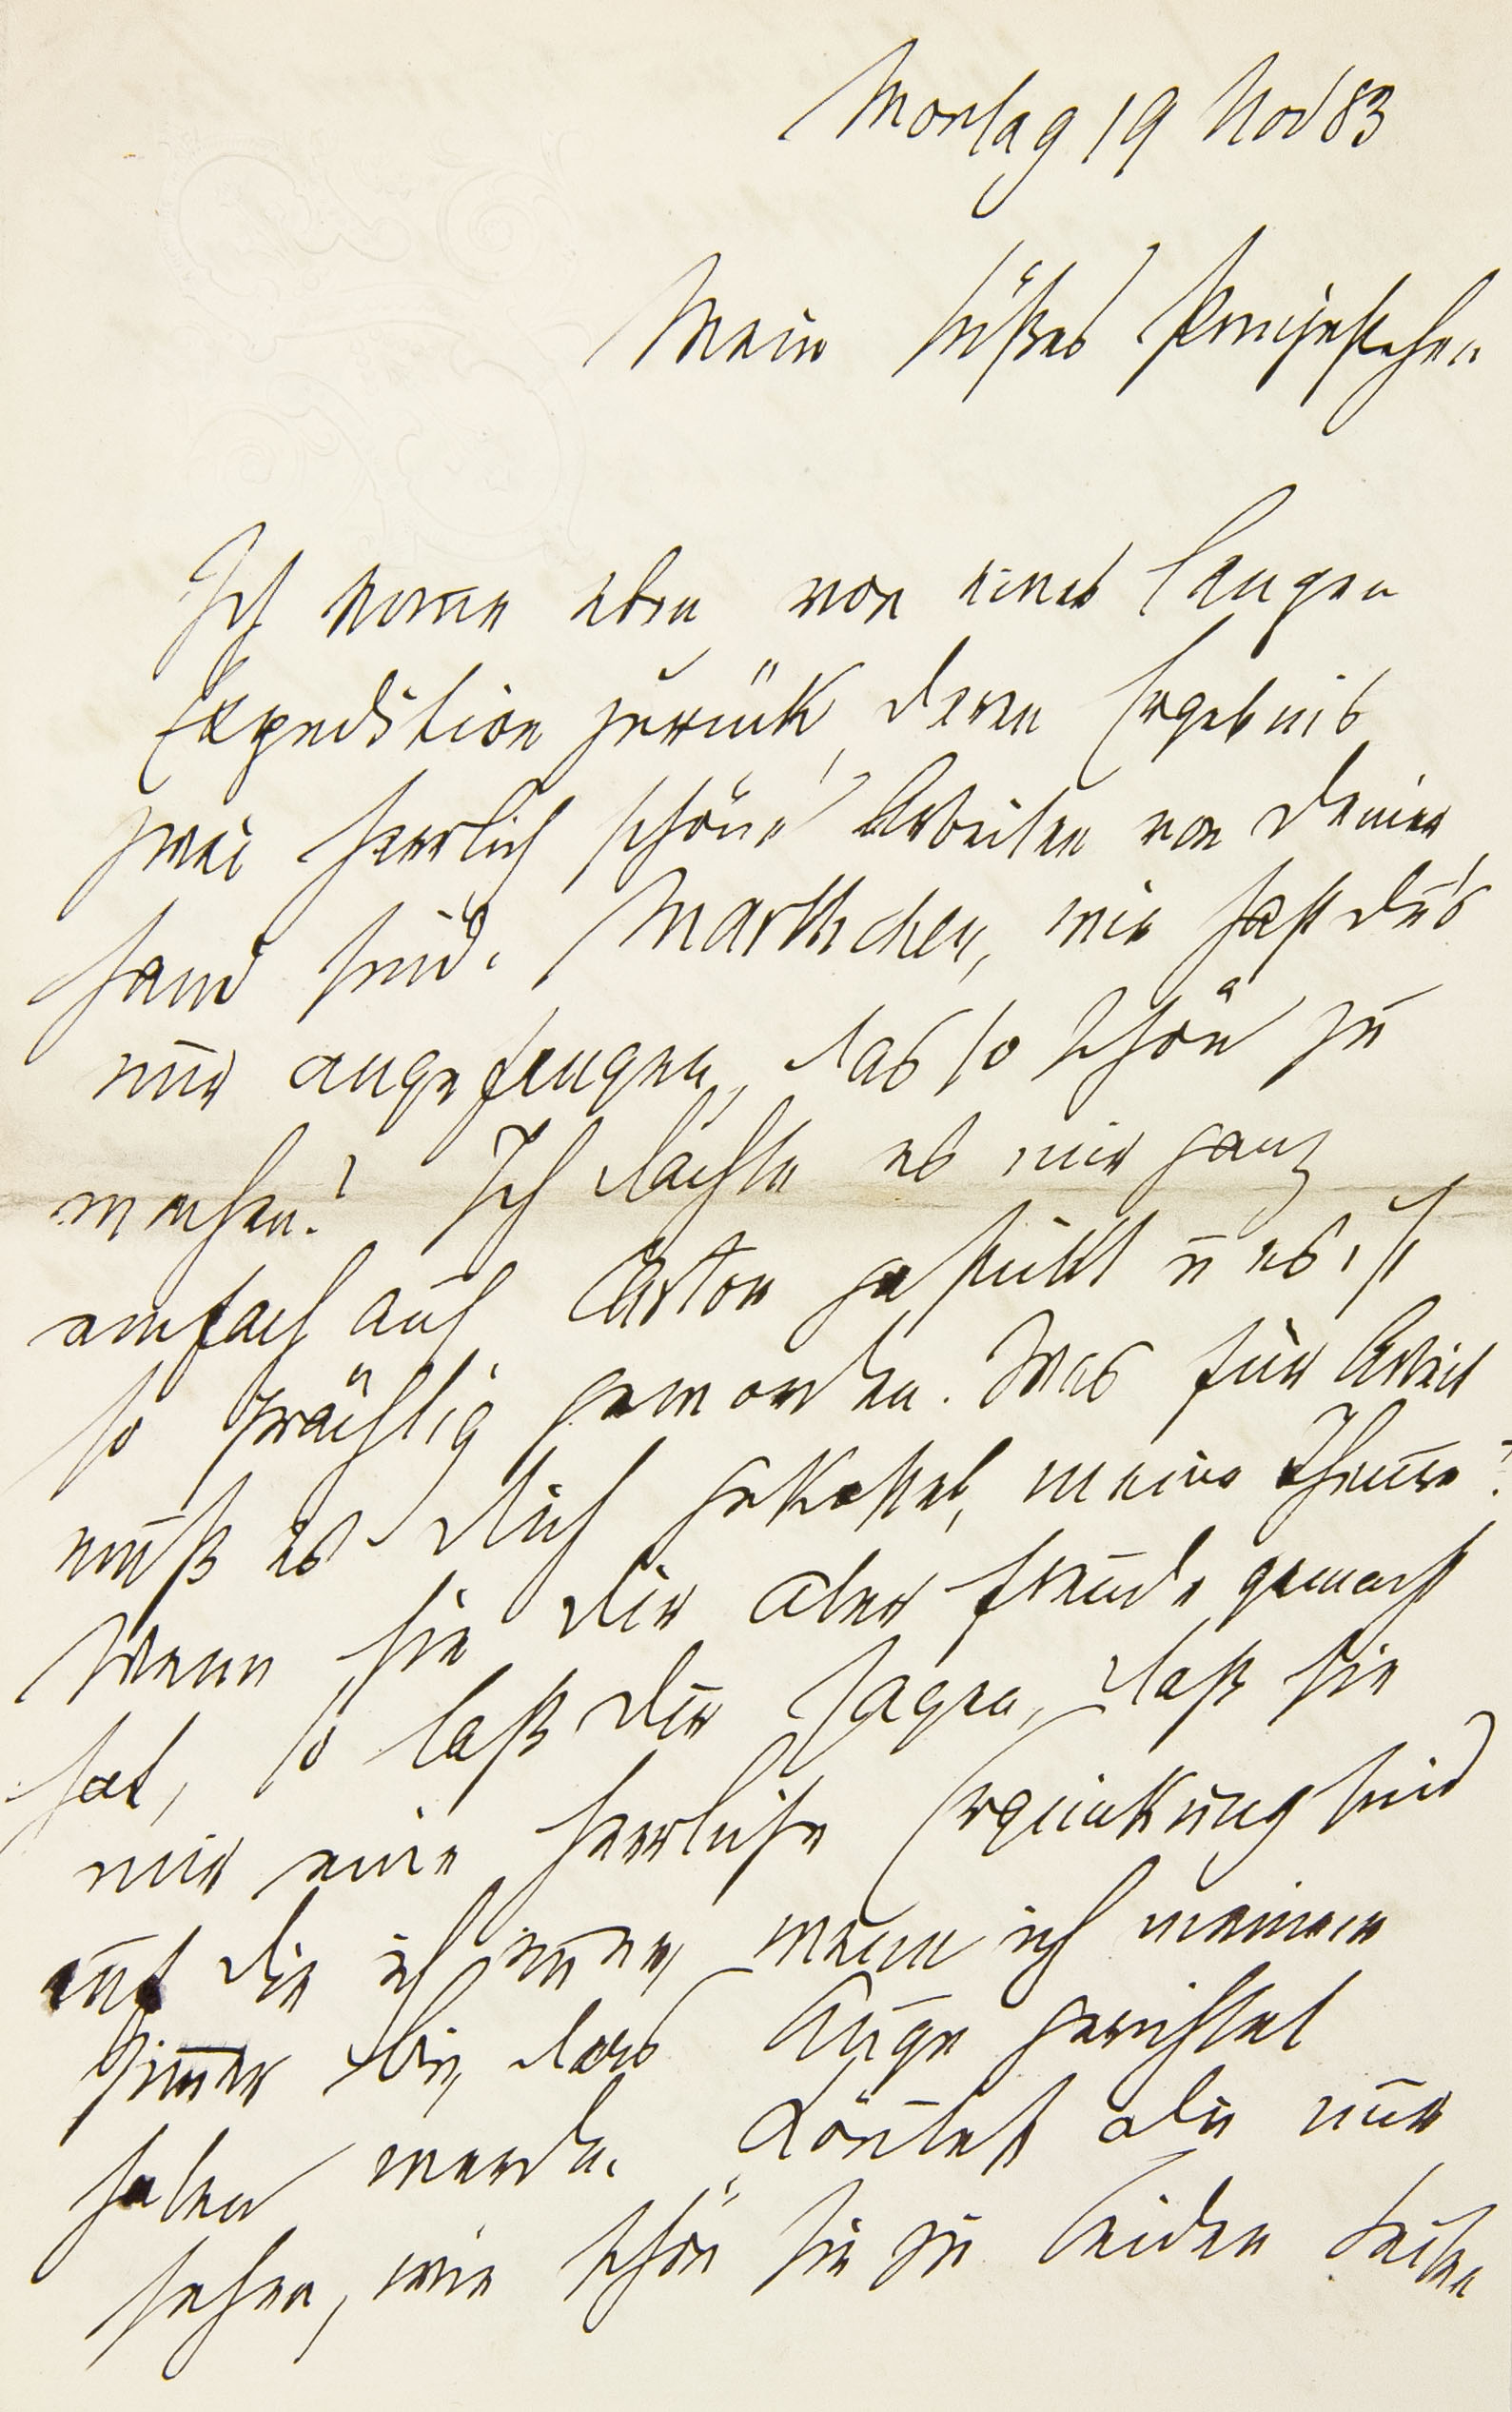 Montag 19 Nov 83
Mein süßes Prinzeßchen
Ich kom̄e eben von einer langen
Expedition zurück, deren Ergebnis
zwei herrlich schöne Arbeiten von Deiner
Hand sind. Marthchen, wie hast du's
nur angefangen, das so schön zu
machen? Ich dachte es mir ganz
einfach auf Carton gestickt u es ist
so prächtig geworden. Was für Arbeit
muß es Dich gekostet, meine Theure?
Wenn sie Dir aber Freude gemacht
hat, so laß Dir sagen, daß sie
mir eine herrliche Erquickung sind
auf die ich im̄er, wenn ich in meinem
Zim̄er bin, das Auge gerichtet
haben werde. Kön̄test du nur
sehen, wie schön sie zu beiden Seiten